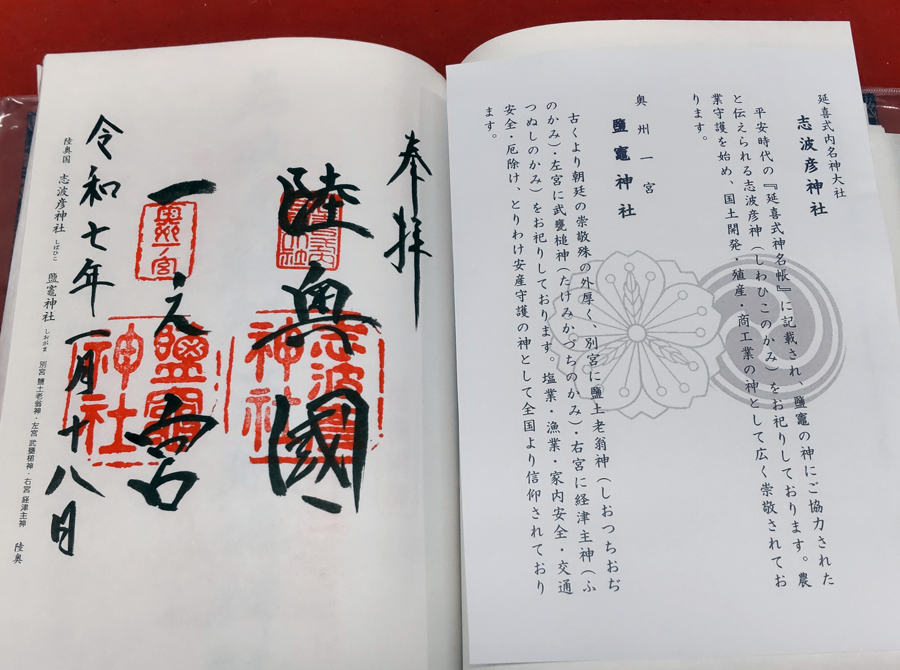 延喜式内名神大社
志波彦神社
平安時代の『延喜式神名帳』に記載され、鹽竈の神にご協力された
と伝えられる志波彦神（しわひこのかみ）をお祀りしております。農
業守護を始め、国土開発・殖産・商工業の神として広く崇敬されてお
ります。
奥州一宮
鹽竈神社
古くより朝廷の崇敬殊の外厚く、別宮に鹽土老翁神（しおつちおぢ
のかみ）・左宮に武甕槌神（たけみかづちのかみ）・右宮に経津主神（ふ
つぬしのかみ）をお祀りしております。塩業・漁業・家内安全・交通
安全・厄除け、とりわけ安産守護の神として全国より信仰されており
ます。
奉拝
陸奥國
志波彦
神社
一之宮
鹽竈
神社
令和七年一月十八日
陸奥国 志波彦神社 しばひこ 鹽竈神社 しおがま 別宮 鹽土老翁神・左宮 武甕槌神・右宮 経津主神 陸奥